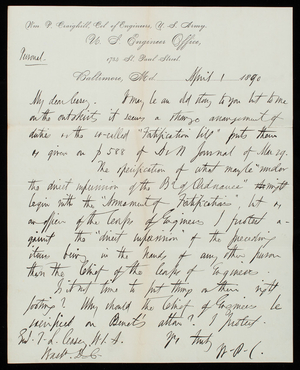 Wm. P. Craighill, Col. of Engineers, U. S. Army.
U. S. Engineer Office,
1725 St. Paul Street.
Personal.
Baltimore, Md April 1 1890
My dear Casey. It may be an old story to you but to me
on the outskirts it seems a strange arrangement of
duties in the so-called "Fortification bill" puts them
as given on p 588 of A & N Journal of Mar 29.
The specification of what may be "under
the direct supervision of the Bd of Ordnance" might
begin with the "Armament of Fortifications", but as
an officer of the Corps of Engineers I protest a-
gainst the "direct supervision" of the preceding
items being in the hands of any other person
than the Chief of the Corps of Engineers
Is it not time to put things on their right
footing? Why should the Chief of Engineers be
sacrificed on altar? I protest.
Yrs truly
W. P. C.
T. L. Casey, U.S.A.
Wash. D. C.